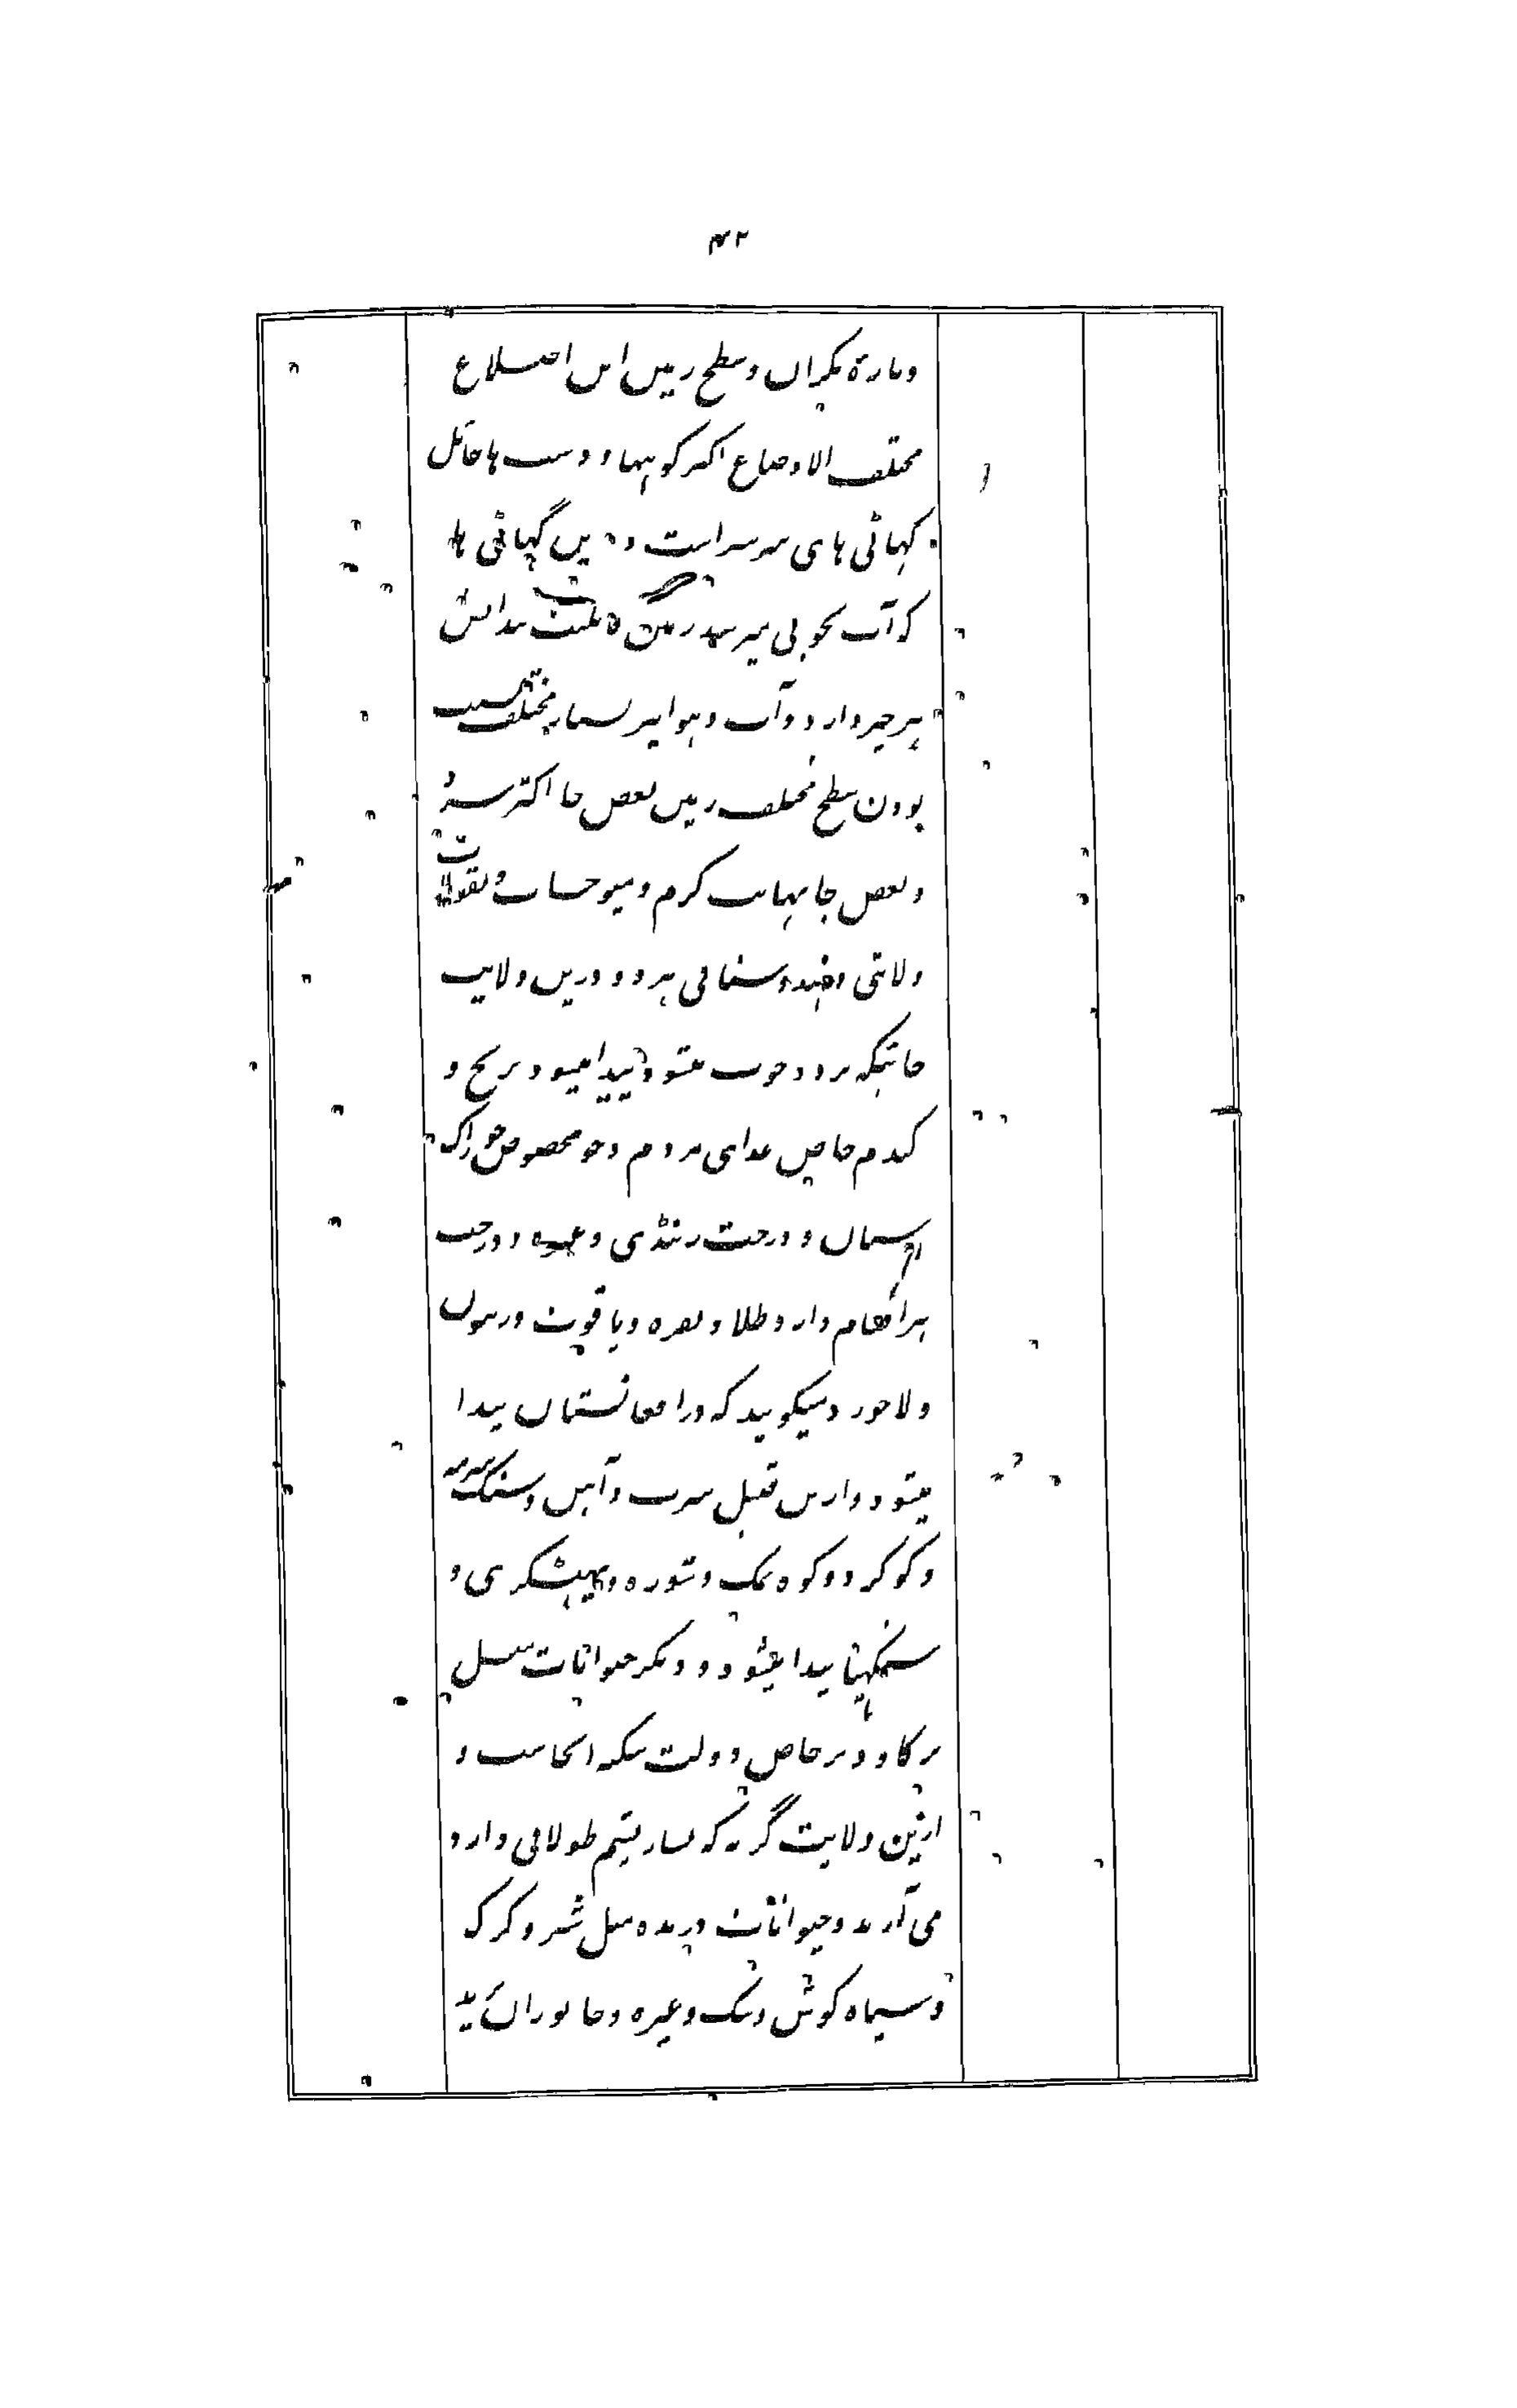 ۴۲
و پارهٔ مکران و سطح زمین این اضلاع
مختلف الاوضاع اکثر کوهها و دشت ها حائل
گهاٹی های سرسبز است و زمین گهاٹی ها
که آب بخوبی میرسد رنگن قابلیت پیدایش
هر چیز دارد و آب و هوا نیز بسیار مختلف بسبب
بودن سطح مختلف زمین بعض جا اکثر سرد
و بعض جا نهایت گرم و میوجات و بقولات
ولایتی و هندوستانی هر دو درین ولایت
جائیکه برد خوب میشود پیدا میشود برنج و
گندم خاص غذای مردم و جو مخصوص خوراک
اسپان و درخت رنڈی وغیره و درخت
هر اقسام دارد طلا و نقره و یاقوت و
و لاجورد میگویند که در افغانستان پیدا
میشود و ازین قبیل سرب و آهن و سنگ سرمه
و گوگرد و کوه نمک و شوره و پهٹکری و
پیدا میشود و دیگر حیوانات مثل
بز گاو و بز خاص دولت سکنه انجاست و
ازین ولایت گربه که بسیار پشم طولانی دارد
می آرند و حیوانات درنده مثل شیر و گرگ
و سیاه گوش و سگ وغیره و جانوران